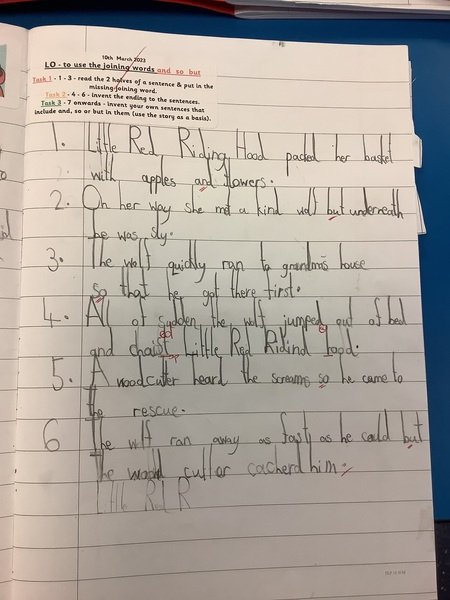 10th March 2023
LO - to use the joining words and so but
Task 1 - 1 - 3 - read the 2 halves of a sentence & put in the
missing joining word.
Task 2 - 4 - 6 - invent the ending to the sentences.
Task 3 - 7 onwards - invent your own sentences that
include and, so or but in them (use the story as a basis).
1. Little Red Riding Hood packed her basket
with apples and flowers.
2. On her way she met a kind wolf but underneath
he was sly.
3. The wolf quickly ran to grandma's house
so that he got there first.
4. All of sudden the wolf jumped out of bed
ed
and chaist Little Red Ridind Hood.
5. A woodcutter heard the screams so he came to
the rescue.
6 The wolf ran away as fast as he could but
the cutter cacherd him.
Little Red R